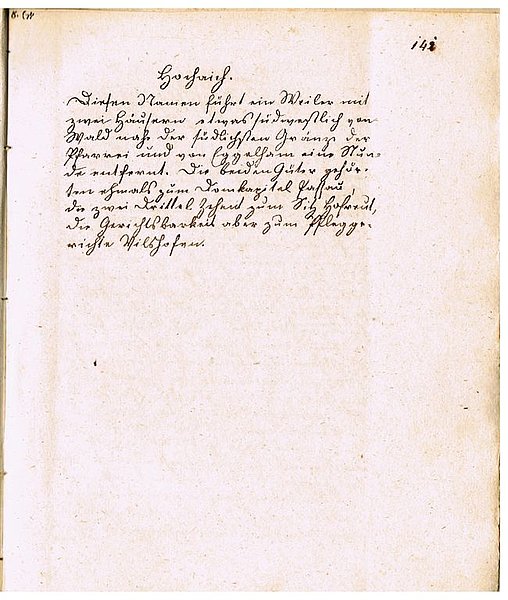 142
Hochaich.
Diesen Namen führt ein Weiler mit
zwei Häusern etwas südwestlich von
Wald nahe der südlichsten Gränze der
Pfarrei und von Egglham eine Stun-
de entfernt. Die beiden Güter gehör-
ten ehmals zum Domkapitel Passau,
die zwei Drittel Zehent zum Sitz Hofreut,
die Gerichtsbarkeit aber zum Pflegge-
richte Vilshofen.